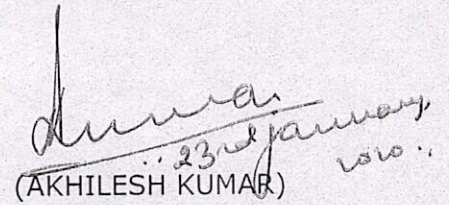 23rd January,
2020.
(AKHILESH KUMAR)